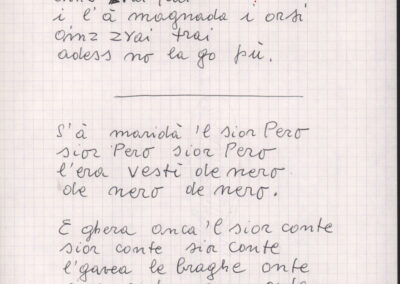 i l'à magnada i orsi
oinz zvai trai
adess no la go pù.
S'à maridà 'l sior Pero
sior Pero sior Pero
l'era vestì de nero
de nero de nero.
E ghera anca 'l sior conte
sior conte sior conte
l'gavea le braghe onte